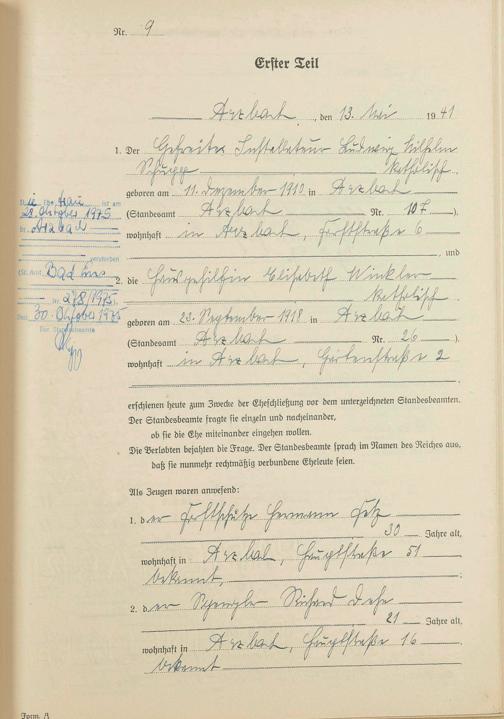 Nr. 9
Erster Teil
Arzbach, den 13. Mai 1941
1. Der Gefreite Installateur Ludwig Wilhelm
Schupp katholisch
geboren am 11. Dezember 1910 in Arzbach
(Standesamt Arzbach Nr. 107)
wohnhaft in Arzbach, Forststraße 6
, und
2. die Hausgehilfin Elisabeth Winkler
katholisch
geboren am 23. September 1918 in Arzbach
(Standesamt Arzbach Nr. 26)
wohnhaft in Arzbach, Gartenstraße 2
erschienen heute zum Zwecke der Eheschließung vor dem unterzeichneten Standesbeamten.
Der Standesbeamte fragte sie einzeln und nacheinander,
ob sie die Ehe miteinander eingehen wollen.
Die Verlobten bejahten die Frage. Der Standesbeamte sprach im Namen des Reiches aus,
daß sie nunmehr rechtmäßig verbundene Eheleute seien.
Als Zeugen waren anwesend:
1. der Forstschütze Hermann
30 Jahre alt,
wohnhaft in Arzbach, Hauptstraße 51
bekannt,
2. der Spengler Richard
21 Jahre alt,
wohnhaft in Arzbach, Hauptstraße 16
bekannt
Die Ehefrau ist am
28. Oktober 1975
in Arzbach
verstorben
(St. Amt Bad Ems
Nr. 278/1975)
Den 30. Oktober 1975
Der Standesbeamte
Form. A